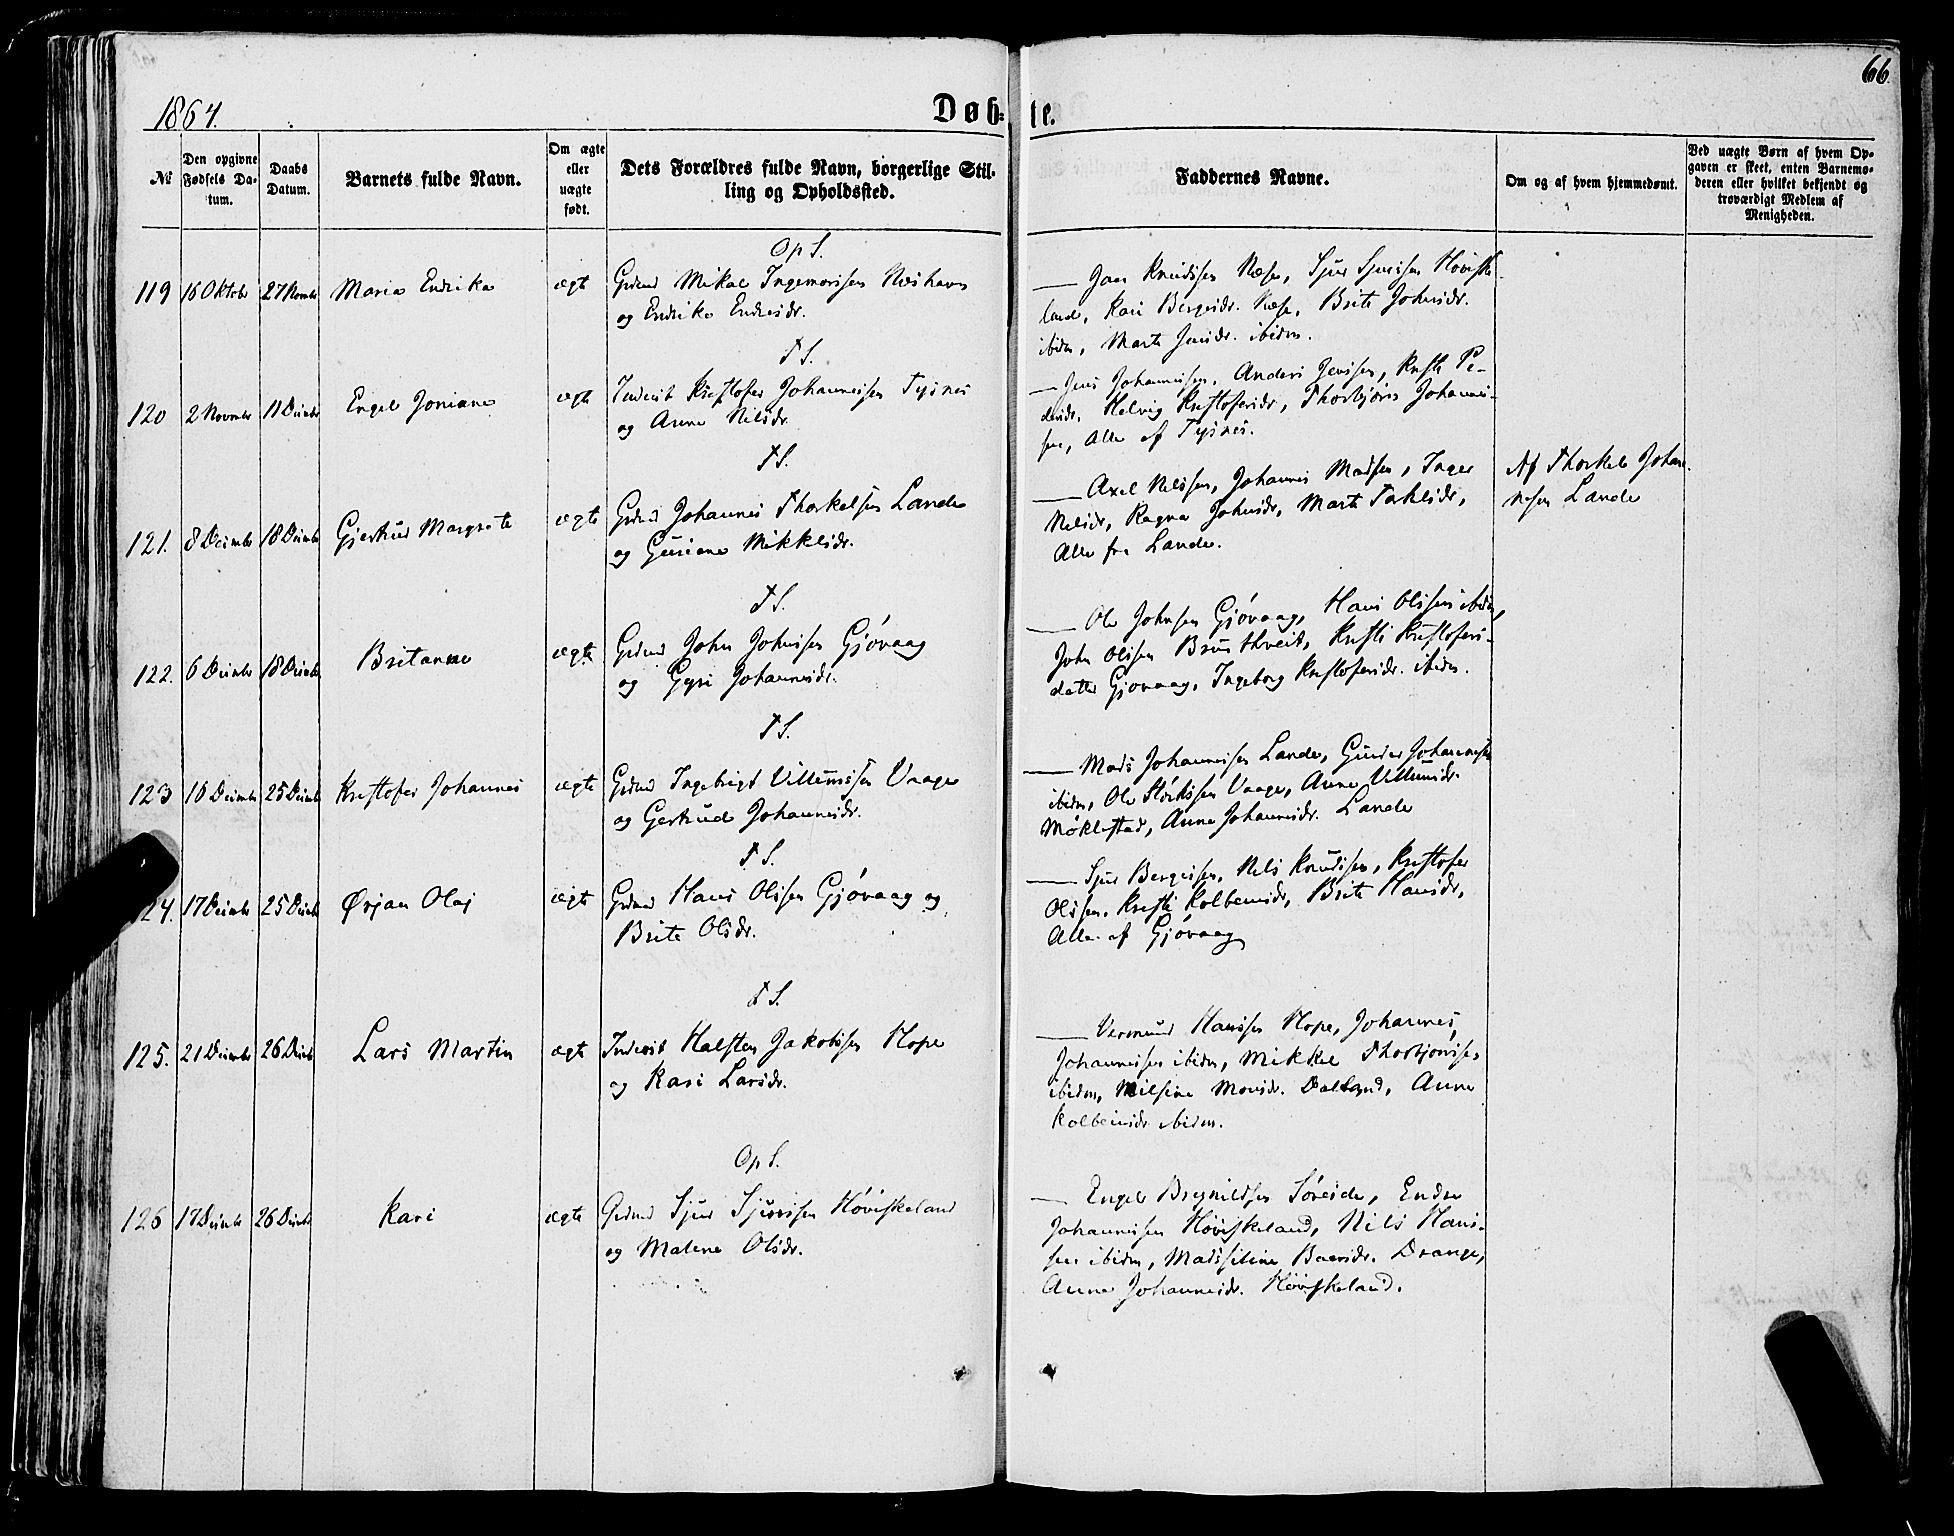 66
1864.
Døb=te.
No
Den opgivne Fødsels Datum.
Daabs Datum.
Barnets fulde Navn.
Om ægte eller uægte født.
Dets Forældres fulde Navn, borgerlige Stilling og Opholdssted.
Faddernes Navne.
Om og af hvem hjemmedøbt.
Ved uægte Børn af hvem Opgaven er skeet, enten Barnemoderen eller hvilket bekjendt og troværdigt Medlem af Menigheden.
Op S.
119 16 Oktobr 27 Novmbr Maria Endrika ægt Grdmd Mikal Ingemorissen Næshavn
og Endrika Endresdr.
Knudssen Næse, Sjur Sjurssen Høviske-
land, Kari Bergesdr. Næse, Brite Johnsdr.
ibidm, Marta Jensdr. ibidm.
T S.
120 2 Novmbr 11 Decmbr Engel Joniane ægt Inderst Kristofer Johannessen Tysnes
og Anna Nilsdr.
Jens Johannessen, Anders Jenssen, Kristi Pe-
dersdr, Helvig Kristofersdr, Thorbjörn Johannes-
sen, Alle af Tysnes.
T S.
121. 8 Decmbr 18 Decmbr Gjertrud Margrete ægte Grdmd Johannes Thorkelsen Lande
og Guriane Mikkelsdr.
Axel Nilssen, Johannes Madssen, Inger
Nilsdr, Ragna Johnsdr, Marta Torkelsdr,
Alle fra Lande.
Af Thorkel Johan-
nesen Lande
T S.
122. 6 Decmbr 18 Decmbr Britanne ægte Grdmd John Johnssen Gjövaag
og Gyri Johannesdr.
Ole Johnsen Gjövaag, Hans Olssen ibidm,
John Olssen Brusthveit, Kristi Kristofers-
datter Gjövaag, Ingeborg Kristofersdr. ibidm.
T S.
123 16 Decmbr 25 Decmbr Kristofer Johannes ægte Grdmd Ingebrigt Villumssen Vaage
og Gertrud Johannesdr.
Mads Johannessen Lande, Johannessen
ibidm, Ole Vaage, Anna Villumsdr.
Möklestad, Anna Johannesdr. Lande
T S.
124. 17 Decmbr 25 Decmbr Ørjan Olai ægte Grdmd Hans Olssen Gjövaag og
Brite Olsdr.
Sjur Bergessen, Nils Knudssen, Kristofer
Olssen, Kristi Kolbensdr, Brite Hansdr,
Alle af Gjövaag
T S.
125. 21 Decmbr 26 Decmbr Lars Martin ægte Inderst Halsten Jakobssen Hope
og Kari Larsdr.
Vermund Hanssen Hope, Johannes
Johannessen ibidm, Mikkel Thorbjörnssen
ibidm, Milsine Monsdr. Dalland, Anna
Kolbensdr ibidm.
Op S.
126 17 Decmbr 26 Decmbr Kari ægte Grdmd Sjur Sjurssen Höviskeland
og Malene Olsdr.
Engel Brynildsen Söreide, Endre
Johannessen Höviskeland, Nils Hans-
sen ibidm, Madsseline Baarsdr. Drange,
Anna Johannesdr. Höviskeland.